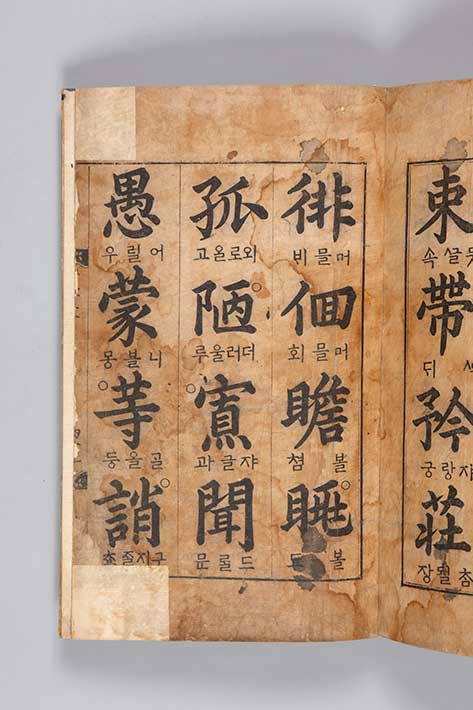 束
帶
矜
쟈랑긍
莊
徘
머믈비
佪
머믈회
瞻
볼쳠
眺
볼
孤
외로올고
陋
더러울루
寡
쟈글과
聞
드룰문
愚
어릴우
蒙
니블몽
䓁
골올등
誚
구지즐쵸